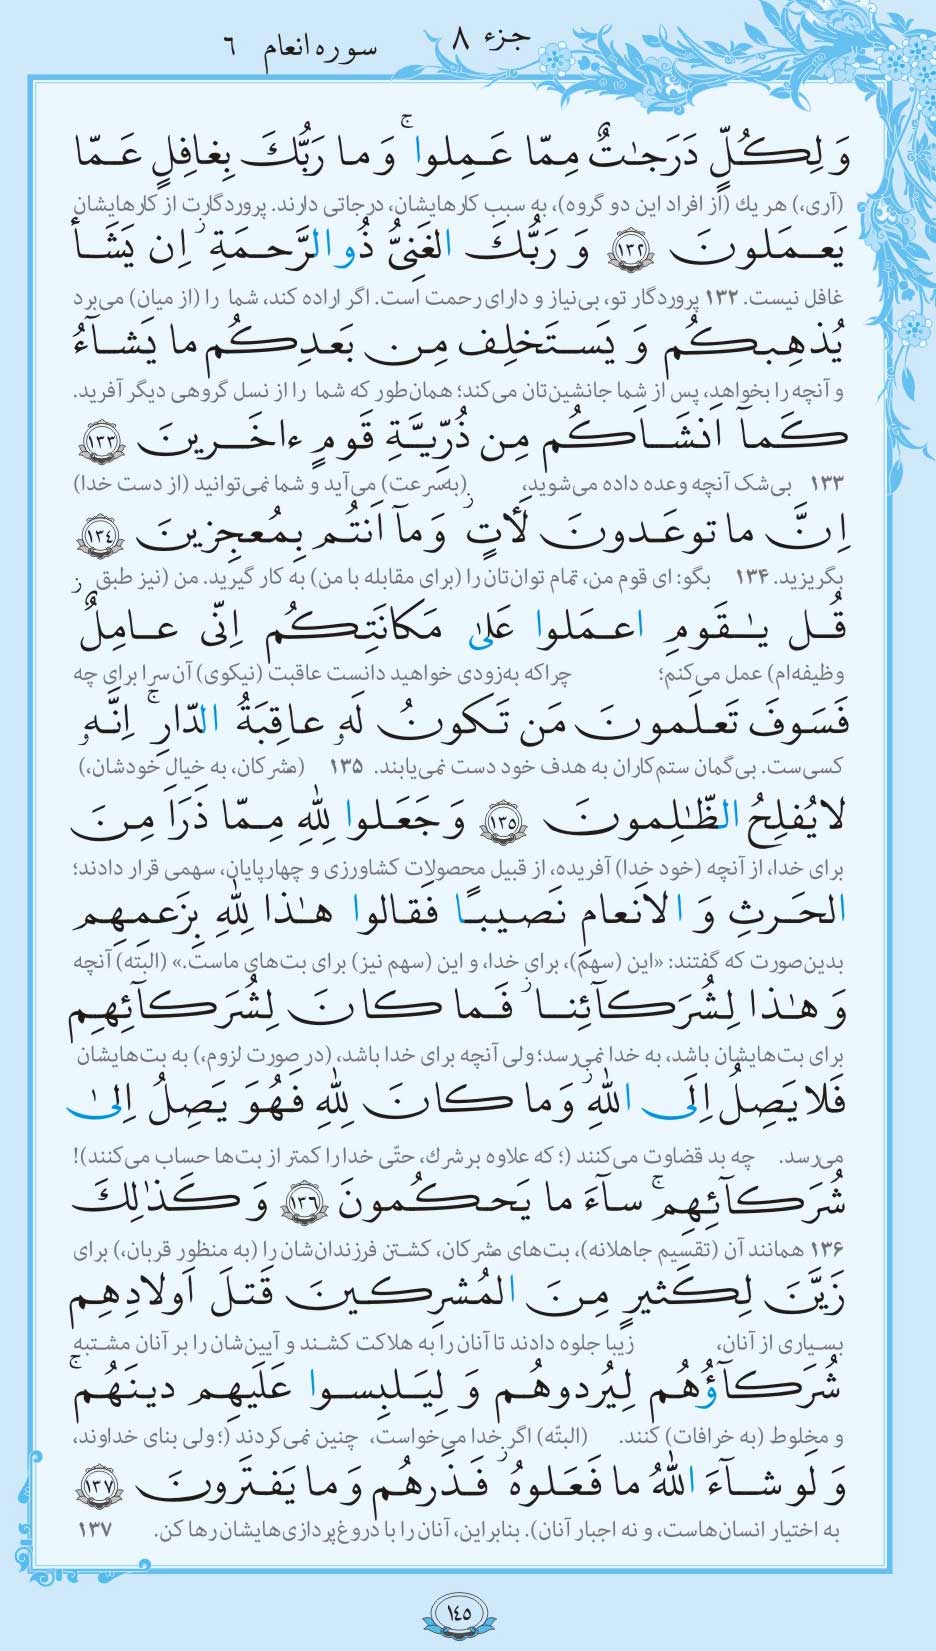 جزء ۸ سوره انعام ۶
وَ لِكُلٍّ دَرَجٰتٌ مِمّا عَمِلوا ۚ وَ ما رَبُّكَ بِغافِلٍ عَمّا
(آری،) هر یك (از افراد این دو گروه)، به سبب كارهایشان، درجاتی دارند. پروردگارت از كارهایشان
يَعمَلونَ ﴿١٣٢﴾ وَ رَبُّكَ الغَنِىُّ ذُو الرَّحمَةِ ۚ اِن يَشَأ
غافل نیست. ۱۳۲ پروردگار تو، بی‌نیاز و دارای رحمت است. اگر اراده كند، شما را (از میان) می‌برد
يُذهِبكُم وَ يَستَخلِف مِن بَعدِكُم ما يَشآءُ
و آنچه را بخواهد، پس از شما جانشین‌تان می‌كند؛ همان‌طور كه شما را از نسل گروهی دیگر آفرید.
كَمآ اَنشَاَكُم مِن ذُرِّيَّةِ قَومٍ ءاخَرينَ ﴿١٣٣﴾
۱۳۳ بی‌شک آنچه وعده داده می‌شوید، (به‌سرعت) می‌آید و شما نمی‌توانید (از دست خدا)
اِنَّ ما توعَدونَ لَأٰتٍ ۖ وَ مآ اَنتُم بِمُعجِزينَ ﴿١٣٤﴾
بگریزید. ۱۳۴ بگو: ای قوم من، تمام توان‌تان را (برای مقابله با من) به كار گیرید. من (نیز طبق
قُل يٰقَومِ اعمَلوا عَلىٰ مَكانَتِكُم اِنّى عامِلٌ ۖ
وظیفه‌ام) عمل می‌كنم؛ چراكه به‌زودی خواهید دانست عاقبت (نیكوی) آن سرا برای چه
فَسَوفَ تَعلَمونَ مَن تَكونُ لَهٗ عاقِبَةُ الدّارِ ۚ اِنَّهٗ
كسی‌ست. بی‌گمان ستم‌كاران به هدف خود دست نمی‌یابند. ۱۳۵ (مشركان، به خیال خودشان،)
لا يُفلِحُ الظّٰلِمونَ ﴿١٣٥﴾ وَ جَعَلوا لِلّٰهِ مِمّا ذَرَاَ مِنَ
برای خدا، از آنچه (خود خدا) آفریده، از قبیل محصولات كشاورزی و چهارپایان، سهمی قرار دادند؛
الحَرثِ وَ الاَنعامِ نَصيبًا فَقالوا هٰذا لِلّٰهِ بِزَعمِهِم
بدین‌صورت كه گفتند: «این (سهم)، برای خدا، و این (سهم نیز) برای بت‌های ماست.» (البته) آنچه
وَ هٰذا لِشُرَكآئِنا ۖ فَما كانَ لِشُرَكآئِهِم
برای بت‌هایشان باشد، به خدا نمی‌رسد؛ ولی آنچه برای خدا باشد، (در صورت لزوم،) به بت‌هایشان
فَلا يَصِلُ اِلَى اللّٰهِ ۖ وَ ما كانَ لِلّٰهِ فَهُوَ يَصِلُ اِلىٰ
می‌رسد. چه بد قضاوت می‌كنند (؛ كه علاوه بر شرك، حتّی خدا را كمتر از بت‌ها حساب می‌كنند)!
شُرَكآئِهِم ۗ سآءَ ما يَحكُمونَ ﴿١٣٦﴾ وَ كَذٰلِكَ
۱۳۶ همانند آن (تقسیم جاهلانه)، بت‌های مشركان، كشتن فرزندان‌شان را (به منظور قربان،) برای
زَيَّنَ لِكَثيرٍ مِنَ المُشرِكينَ قَتلَ اَولادِهِم
بسیاری از آنان، زیبا جلوه دادند تا آنان را به هلاكت كشند و آیین‌شان را بر آنان مشتبه
شُرَكآؤُهُم لِيُردوهُم وَ لِيَلبِسوا عَلَيهِم دينَهُم ۚ
و مخلوط (به خرافات) كنند. (البتّه) اگر خدا می‌خواست، چنین نمی‌كردند (؛ ولی بنای خداوند،
وَ لَو شآءَ اللّٰهُ ما فَعَلوهُ ۖ فَذَرهُم وَ ما يَفتَرونَ ﴿١٣٧﴾
به اختیار انسان‌هاست، و نه اجبار آنان). بنابراین، آنان را با دروغ‌پردازی‌هایشان رها كن. ۱۳۷
١٤٥